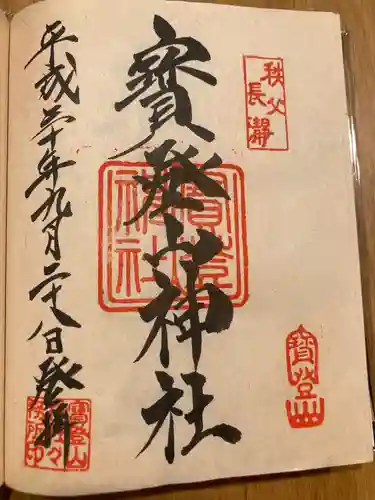 秩父
長瀞
寶登山神社
寶登山
神社
寶登山
平成三十年九月二十八日登拝
寶登山